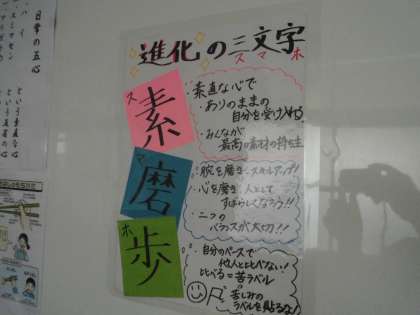 日常の五心
ハイ
という素直な心
という反省の心
進化の三文字
スマホ
ス
素
:素直な心で
ありのままの
自分を受け入れる
:みんなが
最高の素材の持ち主
マ
磨
:腕を磨きスキルアップ!
:心を磨き人として
すばらしくなろう!!
:二つの
バランスが大切!!
ホ
歩
:自分のペースで
他人と比べない!
比べる=苦ラベル
苦しみの
ラベルを貼るな!